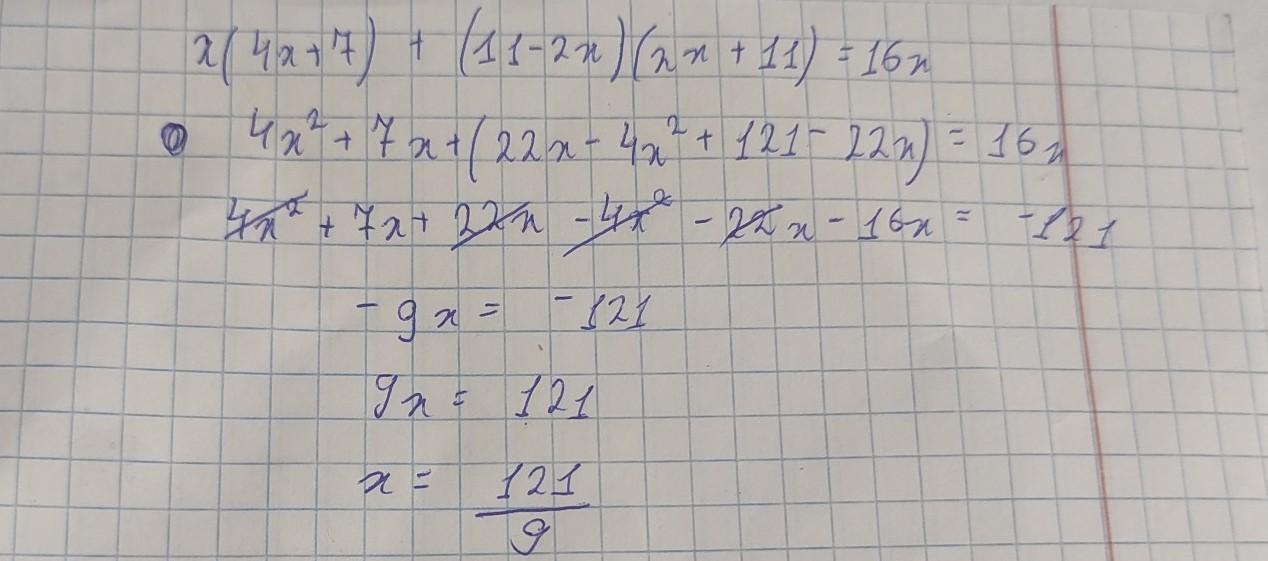 x(4x+7) + (11-2x)(2x+11) = 16x
4x² + 7x + (22x - 4x² + 121 - 22x) = 16x
4x² + 7x + 22x - 4x² - 22x - 16x = -121
-9x = -121
9x = 121
x = 121/9